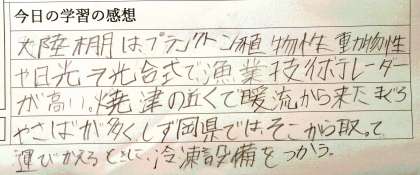 今日の学習の感想
大陸棚はプランクトン植物性、動物性
や日光で光合式で漁業技術レーダー
が高い。焼津の近くで暖流から来たまぐろ
やさばが多く、しず岡県では、そこから取って
運びかえるときに、冷凍設備をつかう。